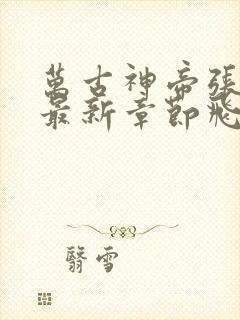 萬古神帝張
最新章節飛
翳雪